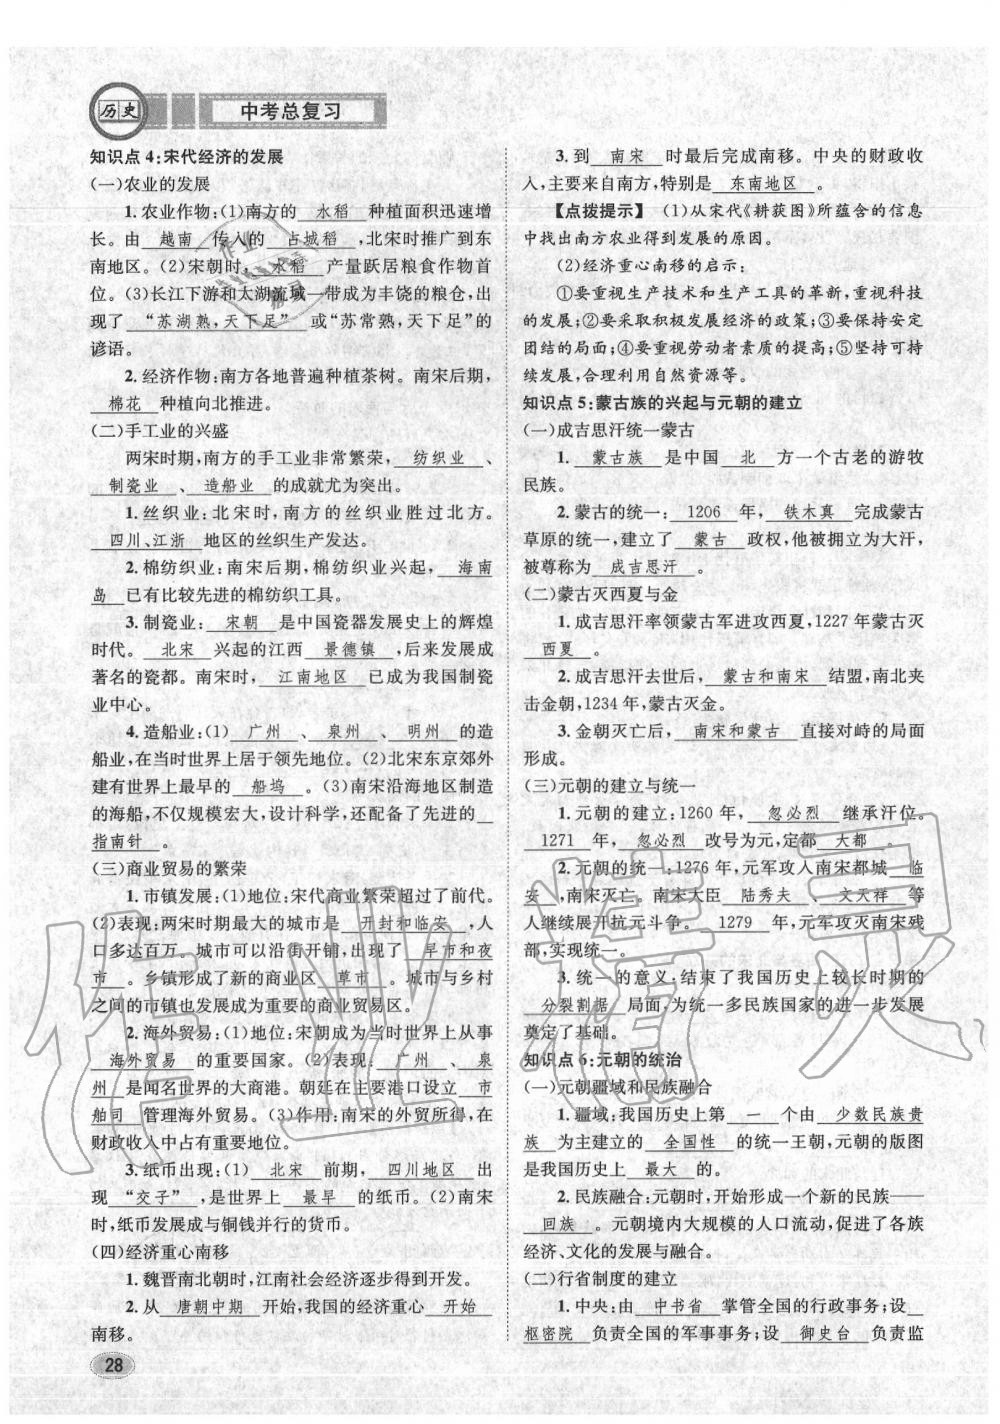 历史
中考总复习
知识点4:宋代经济的发展
(一)农业的发展
1.农业作物:(1)南方的 水稻 种植面积迅速增
长。由 越南 传入的 占城稻 ,北宋时推广到东
南地区。(2)宋朝时, 水稻 产量跃居粮食作物首
位。(3)长江下游和太湖流域一带成为丰饶的粮仓,出
现了 “苏湖熟,天下足” 或“苏常熟,天下足”的
谚语。
2.经济作物:南方各地普遍种植茶树。南宋后期,
棉花 种植向北推进。
(二)手工业的兴盛
两宋时期,南方的手工业非常繁荣, 纺织业 、
制瓷业 、 造船业 的成就尤为突出。
1.丝织业:北宋时,南方的丝织业胜过北方。
四川、江浙 地区的丝织生产发达。
2.棉纺织业:南宋后期,棉纺织业兴起, 海南
岛 已有比较先进的棉纺织工具。
3.制瓷业: 宋朝 是中国瓷器发展史上的辉煌
时代。 北宋 兴起的江西 景德镇 ,后来发展成
著名的瓷都。南宋时, 江南地区 已成为我国制瓷
业中心。
4.造船业:(1) 广州 、 泉州 、 明州 的造
船业,在当时世界上居于领先地位。(2)北宋东京郊外
建有世界上最早的 船坞 。(3)南宋沿海地区制造
的海船,不仅规模宏大,设计科学,还配备了先进的
指南针 。
(三)商业贸易的繁荣
1.市镇发展:(1)地位:宋代商业繁荣超过了前代。
(2)表现:两宋时期最大的城市是 开封和临安 ,人
口多达百万。城市可以沿街开铺,出现了 早市和夜
市 。乡镇形成了新的商业区 草市 。城市与乡村
之间的市镇也发展成为重要的商业贸易区。
2.海外贸易:(1)地位:宋朝成为当时世界上从事
海外贸易 的重要国家。(2)表现: 广州 、 泉
州 是闻名世界的大商港。朝廷在主要港口设立 市
舶司 管理海外贸易。(3)作用:南宋的外贸所得,在
财政收入中占有重要地位。
3.纸币出现:(1) 北宋 前期, 四川地区 出
现 “交子” ,是世界上 最早 的纸币。(2)南宋
时,纸币发展成与铜钱并行的货币。
(四)经济重心南移
1.魏晋南北朝时,江南社会经济逐步得到开发。
2.从 唐朝中期 开始,我国的经济重心 开始
南移。
28
3.到 南宋 时最后完成南移。中央的财政收
入,主要来自南方,特别是 东南地区 。
【点拨提示】 (1)从宋代《耕获图》所蕴含的信息
中找出南方农业得到发展的原因。
(2)经济重心南移的启示:
①要重视生产技术和生产工具的革新,重视科技
的发展;②要采取积极发展经济的政策;③要保持安定
团结的局面;④要重视劳动者素质的提高;⑤坚持可持
续发展,合理利用自然资源等。
知识点5:蒙古族的兴起与元朝的建立
(一)成吉思汗统一蒙古
1. 蒙古族 是中国 北 方一个古老的游牧
民族。
2.蒙古的统一: 1206 年, 铁木真 完成蒙古
草原的统一,建立了 蒙古 政权,他被拥立为大汗,
被尊称为 成吉思汗 。
(二)蒙古灭西夏与金
1.成吉思汗率领蒙古军进攻西夏,1227年蒙古灭
西夏 。
2.成吉思汗去世后, 蒙古和南宋 结盟,南北夹
击金朝,1234年,蒙古灭金。
3.金朝灭亡后, 南宋和蒙古 直接对峙的局面
形成。
(三)元朝的建立与统一
1.元朝的建立:1260年, 忽必烈 继承汗位。
1271 年, 忽必烈 改号为元,定都 大都 。
2.元朝的统一:1276年,元军攻入南宋都城 临
安 ,南宋灭亡。南宋大臣 陆秀夫 、 文天祥 等
人继续展开抗元斗争。 1279 年,元军攻灭南宋残
部,实现统一。
3.统一的意义:结束了我国历史上较长时期的
分裂割据 局面,为统一多民族国家的进一步发展
奠定了基础。
知识点6:元朝的统治
(一)元朝疆域和民族融合
1.疆域:我国历史上第 一 个由 少数民族贵
族 为主建立的 全国性 的统一王朝,元朝的版图
是我国历史上 最大 的。
2.民族融合:元朝时,开始形成一个新的民族——
回族 。元朝境内大规模的人口流动,促进了各族
经济、文化的发展与融合。
(二)行省制度的建立
1.中央:由 中书省 掌管全国的行政事务;设
枢密院 负责全国的军事事务;设 御史台 负责监
作业精灵